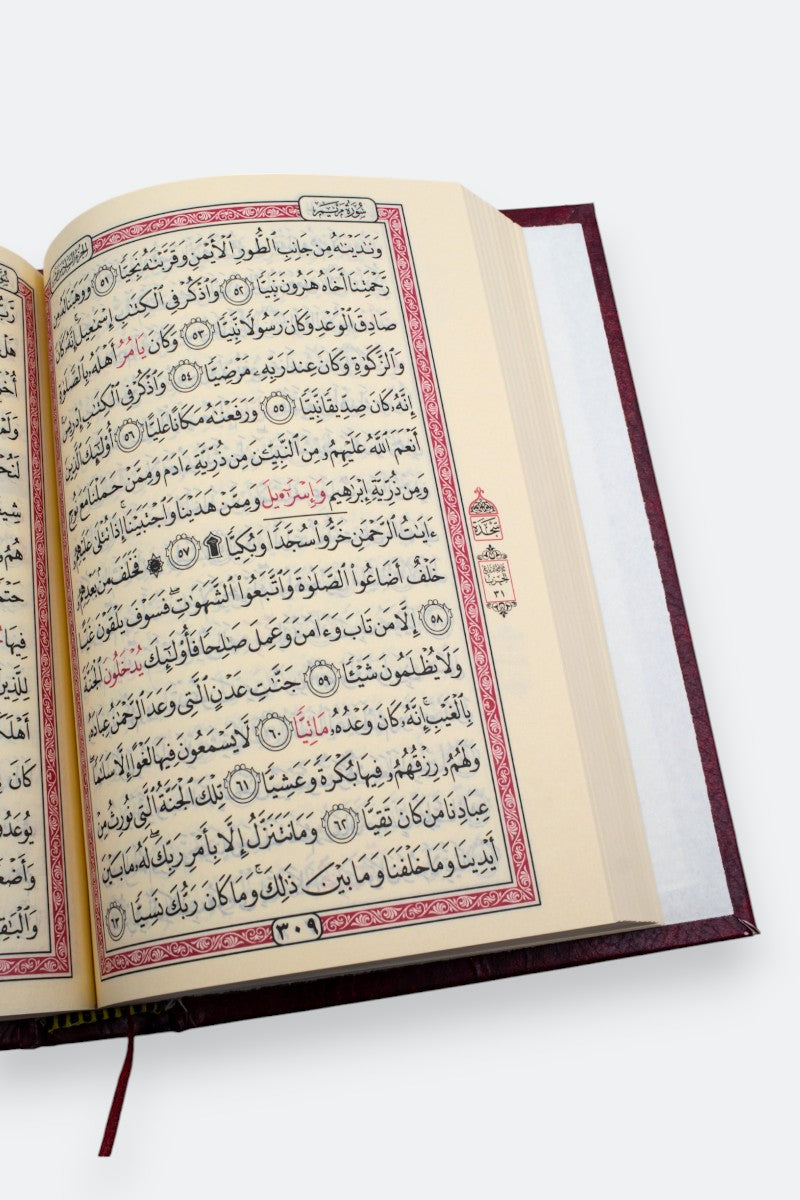 سُورَةُ مَرْيَمَ
وَنَٰدَيْنَٰهُ مِن جَانِبِ الطُّورِ الْأَيْمَنِ وَقَرَّبْنَٰهُ نَجِيًّا ٥١ وَوَهَبْنَا لَهُۥ مِن
رَّحْمَتِنَا أَخَاهُ هَٰرُونَ نَبِيًّا ٥٢ وَاذْكُرْ فِي الْكِتَٰبِ إِسْمَٰعِيلَ إِنَّهُۥ كَانَ
صَادِقَ الْوَعْدِ وَكَانَ رَسُولًا نَّبِيًّا ٥٣ وَكَانَ يَامُرُ أَهْلَهُۥ بِالصَّلَوٰةِ
وَالزَّكَوٰةِ وَكَانَ عِندَ رَبِّهِۦ مَرْضِيًّا ٥٤ وَاذْكُرْ فِي الْكِتَٰبِ إِدْرِيسَ
إِنَّهُۥ كَانَ صِدِّيقًا نَّبِيًّا ٥٥ وَرَفَعْنَٰهُ مَكَانًا عَلِيًّا ٥٦ أُوْلَٰٓئِكَ الَّذِينَ
أَنْعَمَ اللَّهُ عَلَيْهِم مِّنَ النَّبِيِّـۧنَ مِن ذُرِّيَّةِ ءَادَمَ وَمِمَّنْ حَمَلْنَا مَعَ نُوحٍ
وَمِن ذُرِّيَّةِ إِبْرَٰهِيمَ وَإِسْرَٰٓءِيلَ وَمِمَّنْ هَدَيْنَا وَاجْتَبَيْنَا إِذَا تُتْلَىٰ عَلَيْهِمُۥ
ءَايَٰتُ الرَّحْمَٰنِ خَرُّوا۟ سُجَّدًا وَبُكِيًّا ۩ ٥٧ ۞ فَخَلَفَ مِنۢ بَعْدِهِمُۥ
خَلْفٌ أَضَاعُوا۟ الصَّلَوٰةَ وَاتَّبَعُوا۟ الشَّهَوَٰتِ فَسَوْفَ يَلْقَوْنَ غَيًّا
٥٨ إِلَّا مَن تَابَ وَءَامَنَ وَعَمِلَ صَٰلِحًا فَأُوْلَٰٓئِكَ يُدْخَلُونَ الْجَنَّةَ
وَلَا يُظْلَمُونَ شَيْـًٔا ٥٩ جَنَّٰتِ عَدْنٍ الَّتِي وَعَدَ الرَّحْمَٰنُ عِبَادَهُۥ
بِالْغَيْبِ إِنَّهُۥ كَانَ وَعْدُهُۥ مَاتِيًّا ٦٠ لَا يَسْمَعُونَ فِيهَا لَغْوًا إِلَّا سَلَٰمًا
وَلَهُمُۥ رِزْقُهُمُۥ فِيهَا بُكْرَةً وَعَشِيًّا ٦١ تِلْكَ الْجَنَّةُ الَّتِي نُورِثُ مِنْ
عِبَادِنَا مَن كَانَ تَقِيًّا ٦٢ وَمَا نَتَنَزَّلُ إِلَّا بِأَمْرِ رَبِّكَ لَهُۥ مَا بَيْنَ
أَيْدِينَا وَمَا خَلْفَنَا وَمَا بَيْنَ ذَٰلِكَ وَمَا كَانَ رَبُّكَ نَسِيًّا ٦٣
٣٠٩
سَجْدَة
الحِزب
٣١